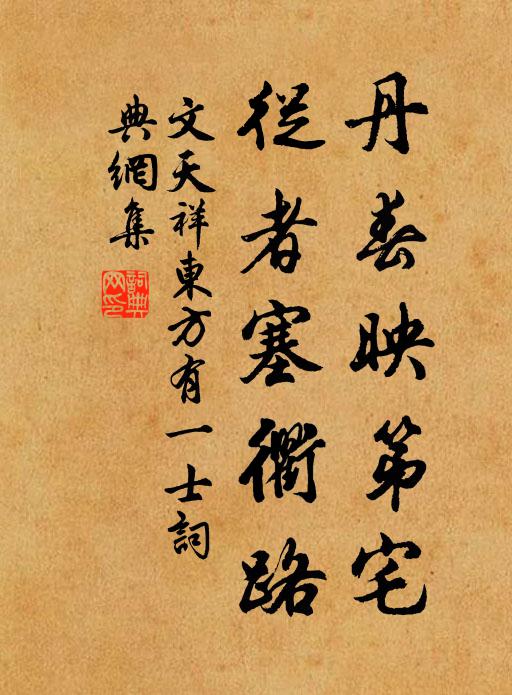 丹春映第宅
從者塞衢路
文天祥東方有一士詞
典網集
詞典網印